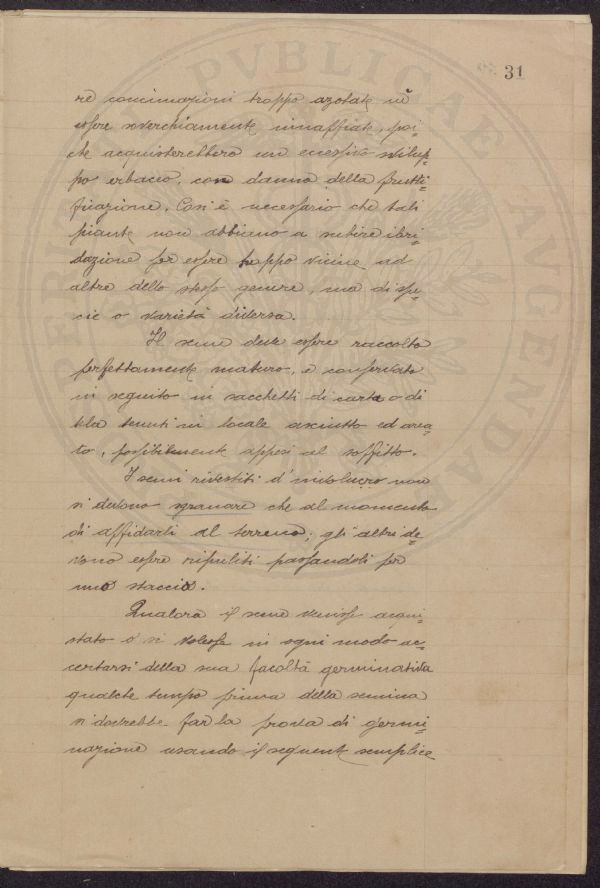 31
re concimazioni troppo azotate nè
essere soverchiamente innaffiate, poi-
chè acquisterebbero un eccessivo svilup-
po erbaceo, con danno della frutti-
ficazione. Così è necessario che tali
piante non abbiano a subire ibri-
dazione per essere troppo vicine ad
altre dello stesso genere, ma di spe-
cie o varietà diversa.
Il seme deve essere raccolto
perfettamente maturo, e conservato
in seguito in sacchetti di carta o di
tela tenuti in locale asciutto ed area-
to, possibilmente appesi al soffitto.
I semi rivestiti d'involucro non
si devono sgranare che al momento
di affidarli al terreno; gli altri de-
vono essere ripuliti passandoli per
uno staccio.
Qualora il seme venisse acqui-
stato o si volesse in ogni modo ac-
certarsi della sua facoltà germinativa
qualche tempo prima della semina
si dovrebbe far la prova di germi-
nazione usando il seguente semplice
PVBLICAE